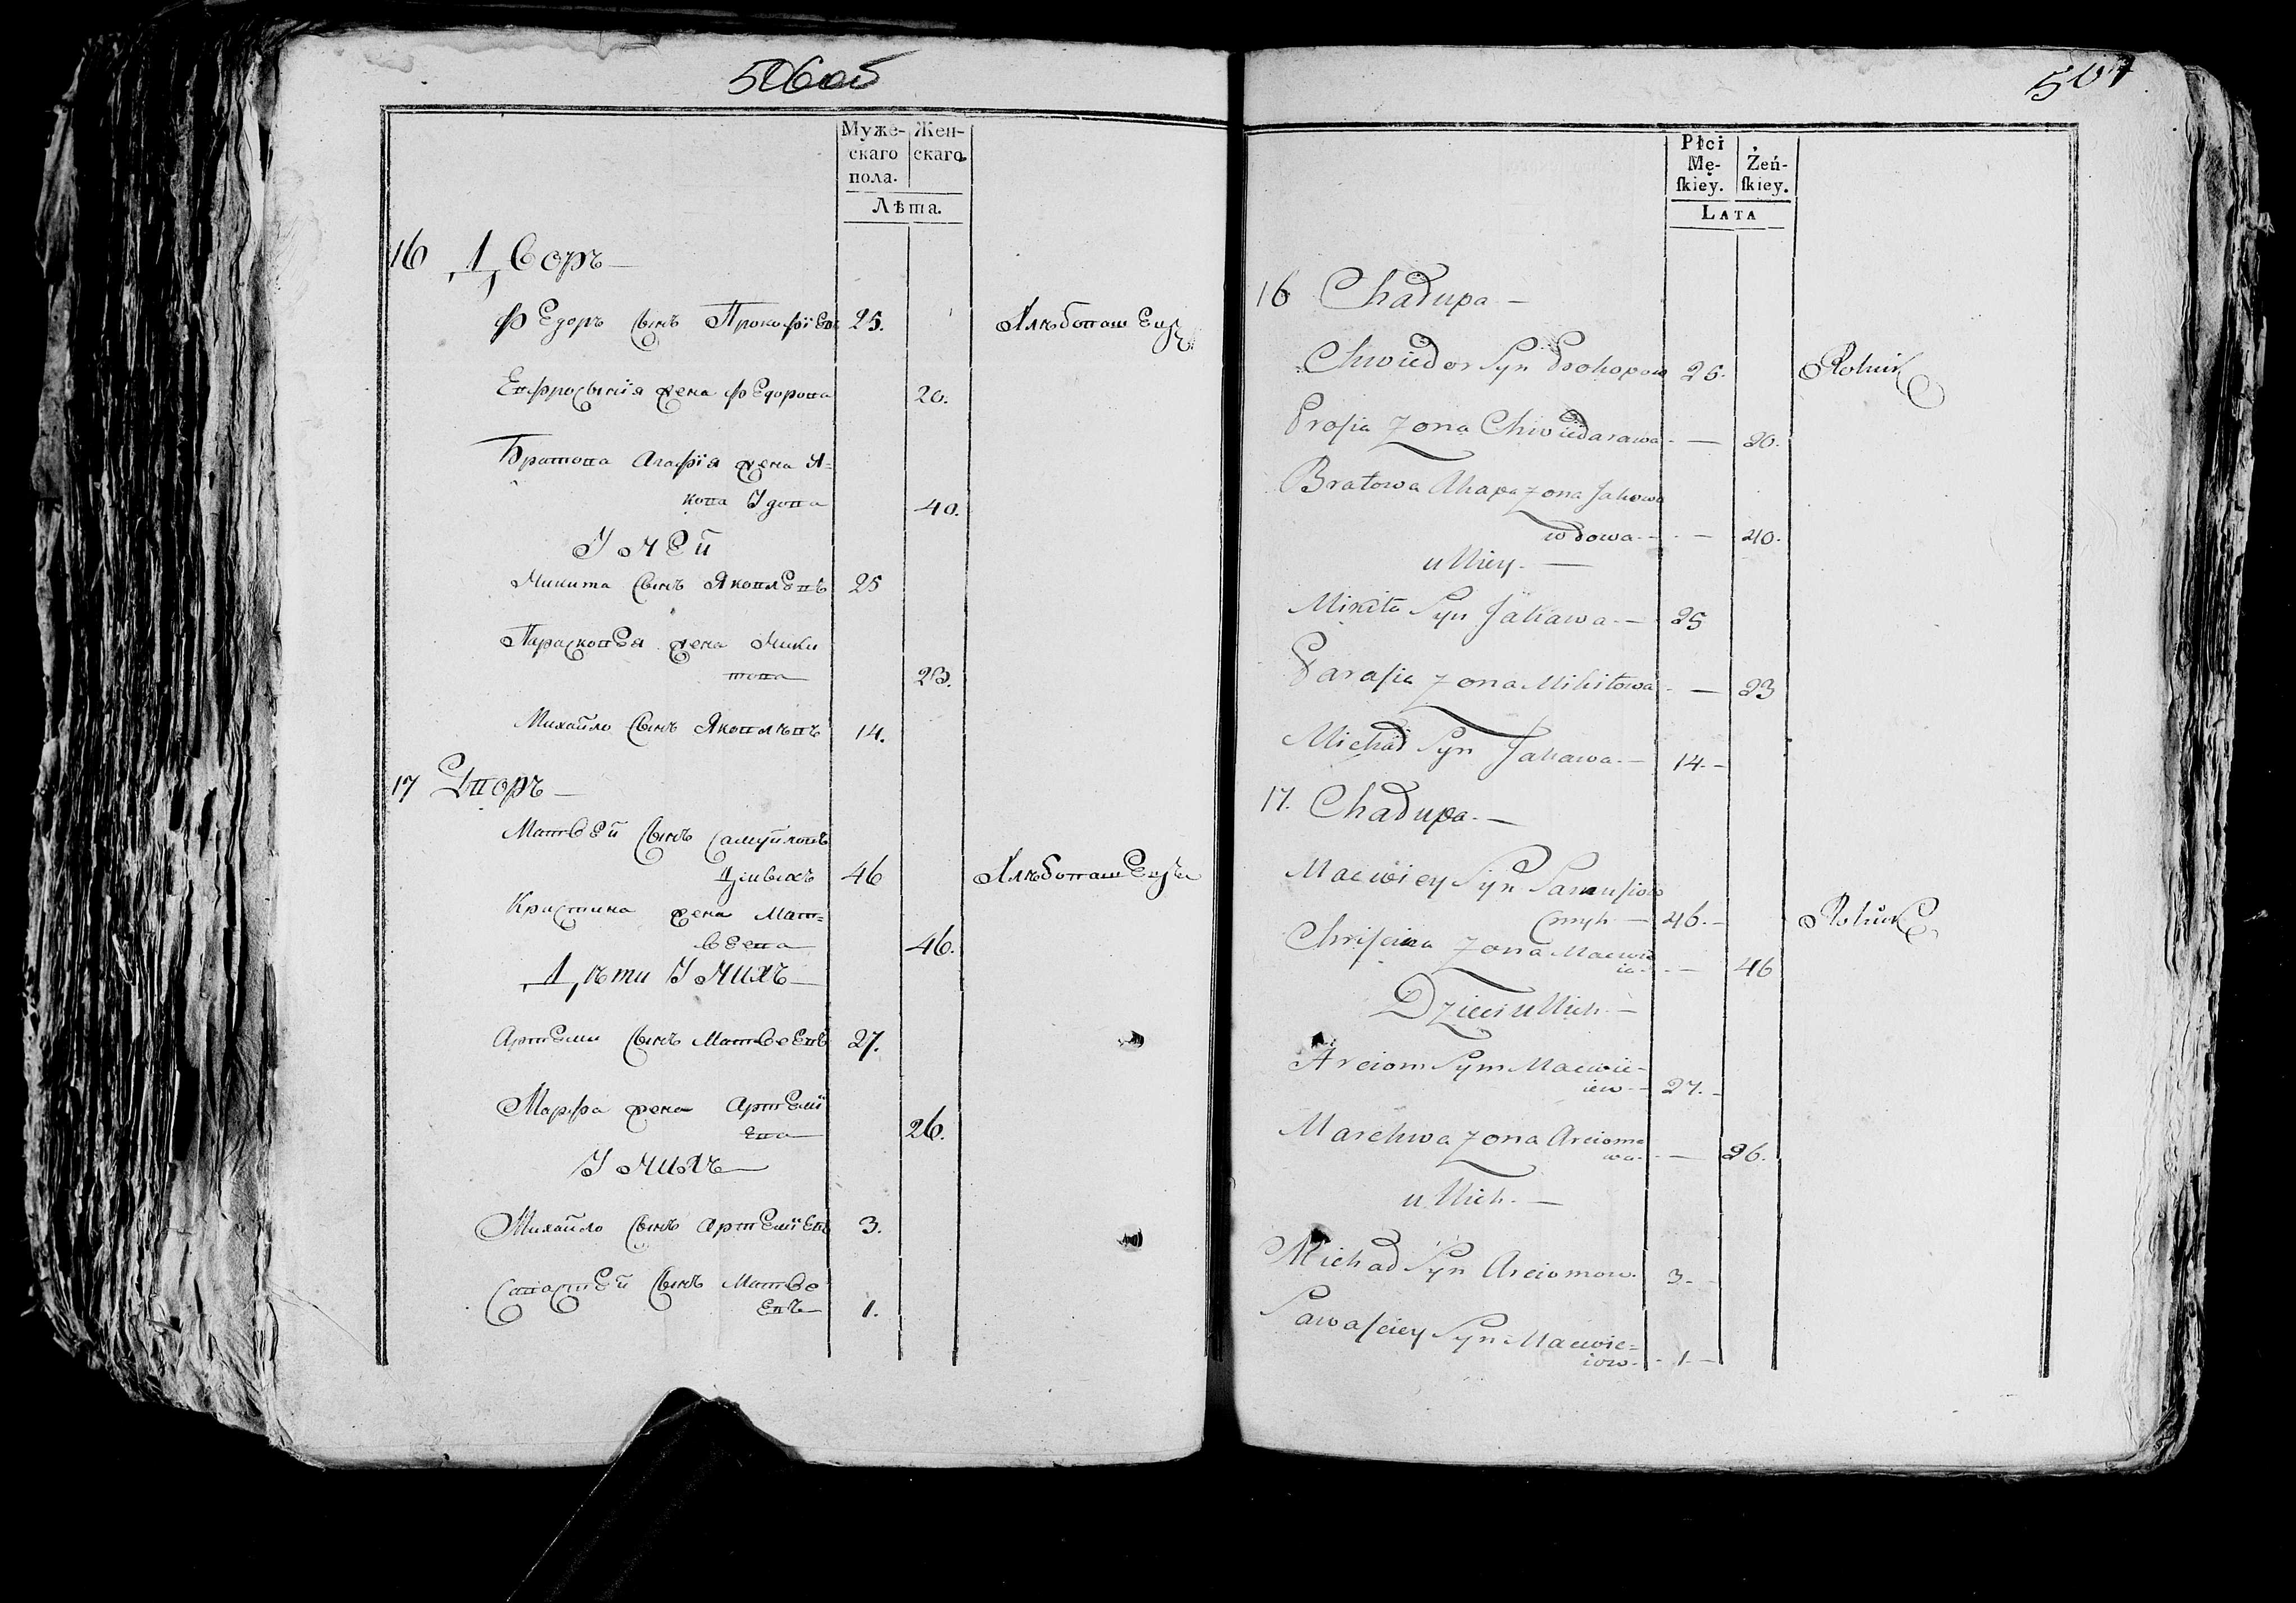 506об
Муже-
скаго
пола.
Жен-
скаго
Лѣта.
16 Дворъ
Федоръ сынъ Прокофіевъ 25. Хлѣбопашецъ
Евфросинія жена Федорова 20.
Братова Агафія жена Я-
кова Удова 40.
У ней
Микита сынъ Яковлевъ 25
Парасковея жена Мики
това 23.
Михайло сынъ Яковлѣвъ 14.
17 Дворъ
Матвей сынъ Самуйловъ
46 Хлѣбопашецъ
Кристина жена Мат=
веева 46.
Дѣти У нихъ
Артеми сынъ Матвеевъ 27.
Марфа жена Артемі
ева 26.
У нихъ
Михайло сынъ Артеміевъ 3.
Савастей сынъ Матве
евъ 1.
507
Płci
Mę-
ſkiey.
Żeń-
ſkiey.
LATA
16 Chałupa —
Chwiedor Syn Prokopow 25. Rolnik
Proſia Zona Chwiedarawa - — 20.
Bratowa Ahapa Zona Jakowa
wdowa - - — 40.
u Niey. —
Mikita Syn Jakawa. — 25
Paraſia Zona Mikitowa - — 23
Michał Syn Jakawa. — 14. -
17. Chałupa. —
Maćwiey Syn Samuſiow
— 46. - Rolnik
Chriſcina Zona Maćwie
ia - - — 46
Dzieci u Nich. —
Arciom Syn Maćwie-
iew - 27. -
Marchwa Zona Arciomo
wa - - — 26.
u Nich. —
Michał Syn Arciomow. 3. -
Sawaſciey Syn Maćwie=
iow. - 1 —